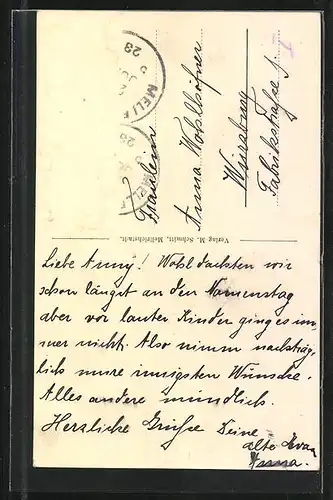 Fräulein
Anna Wohlhöfner
Würzburg
Fabrikstraße
Verlag M. Schmitt, Mellrichstadt.
Liebe Anny! Wohl dachten wir
schon längst an den Namenstag
aber vor lauter Kinder ging es im-
mer nicht. Also nimm nachträg-
lich unsre innigsten Wünsche.
Alles andere mündlich.
Herzliche Grüße Deine
alte